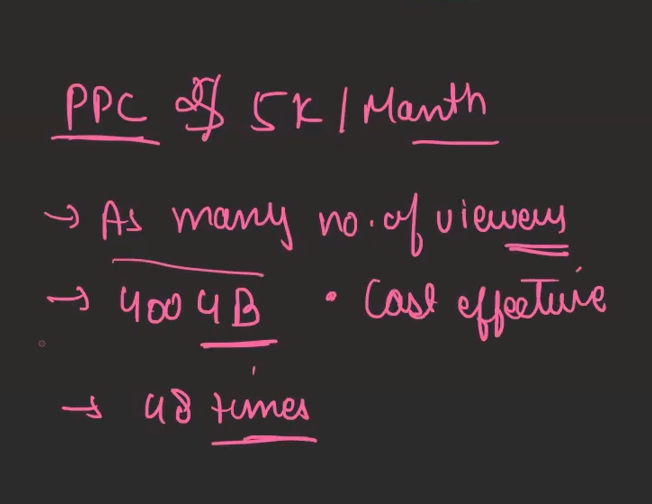 PPC $ 5K / Month
→ As many no. of viewers
→ 400 4B • Cost effective
→ 48 times